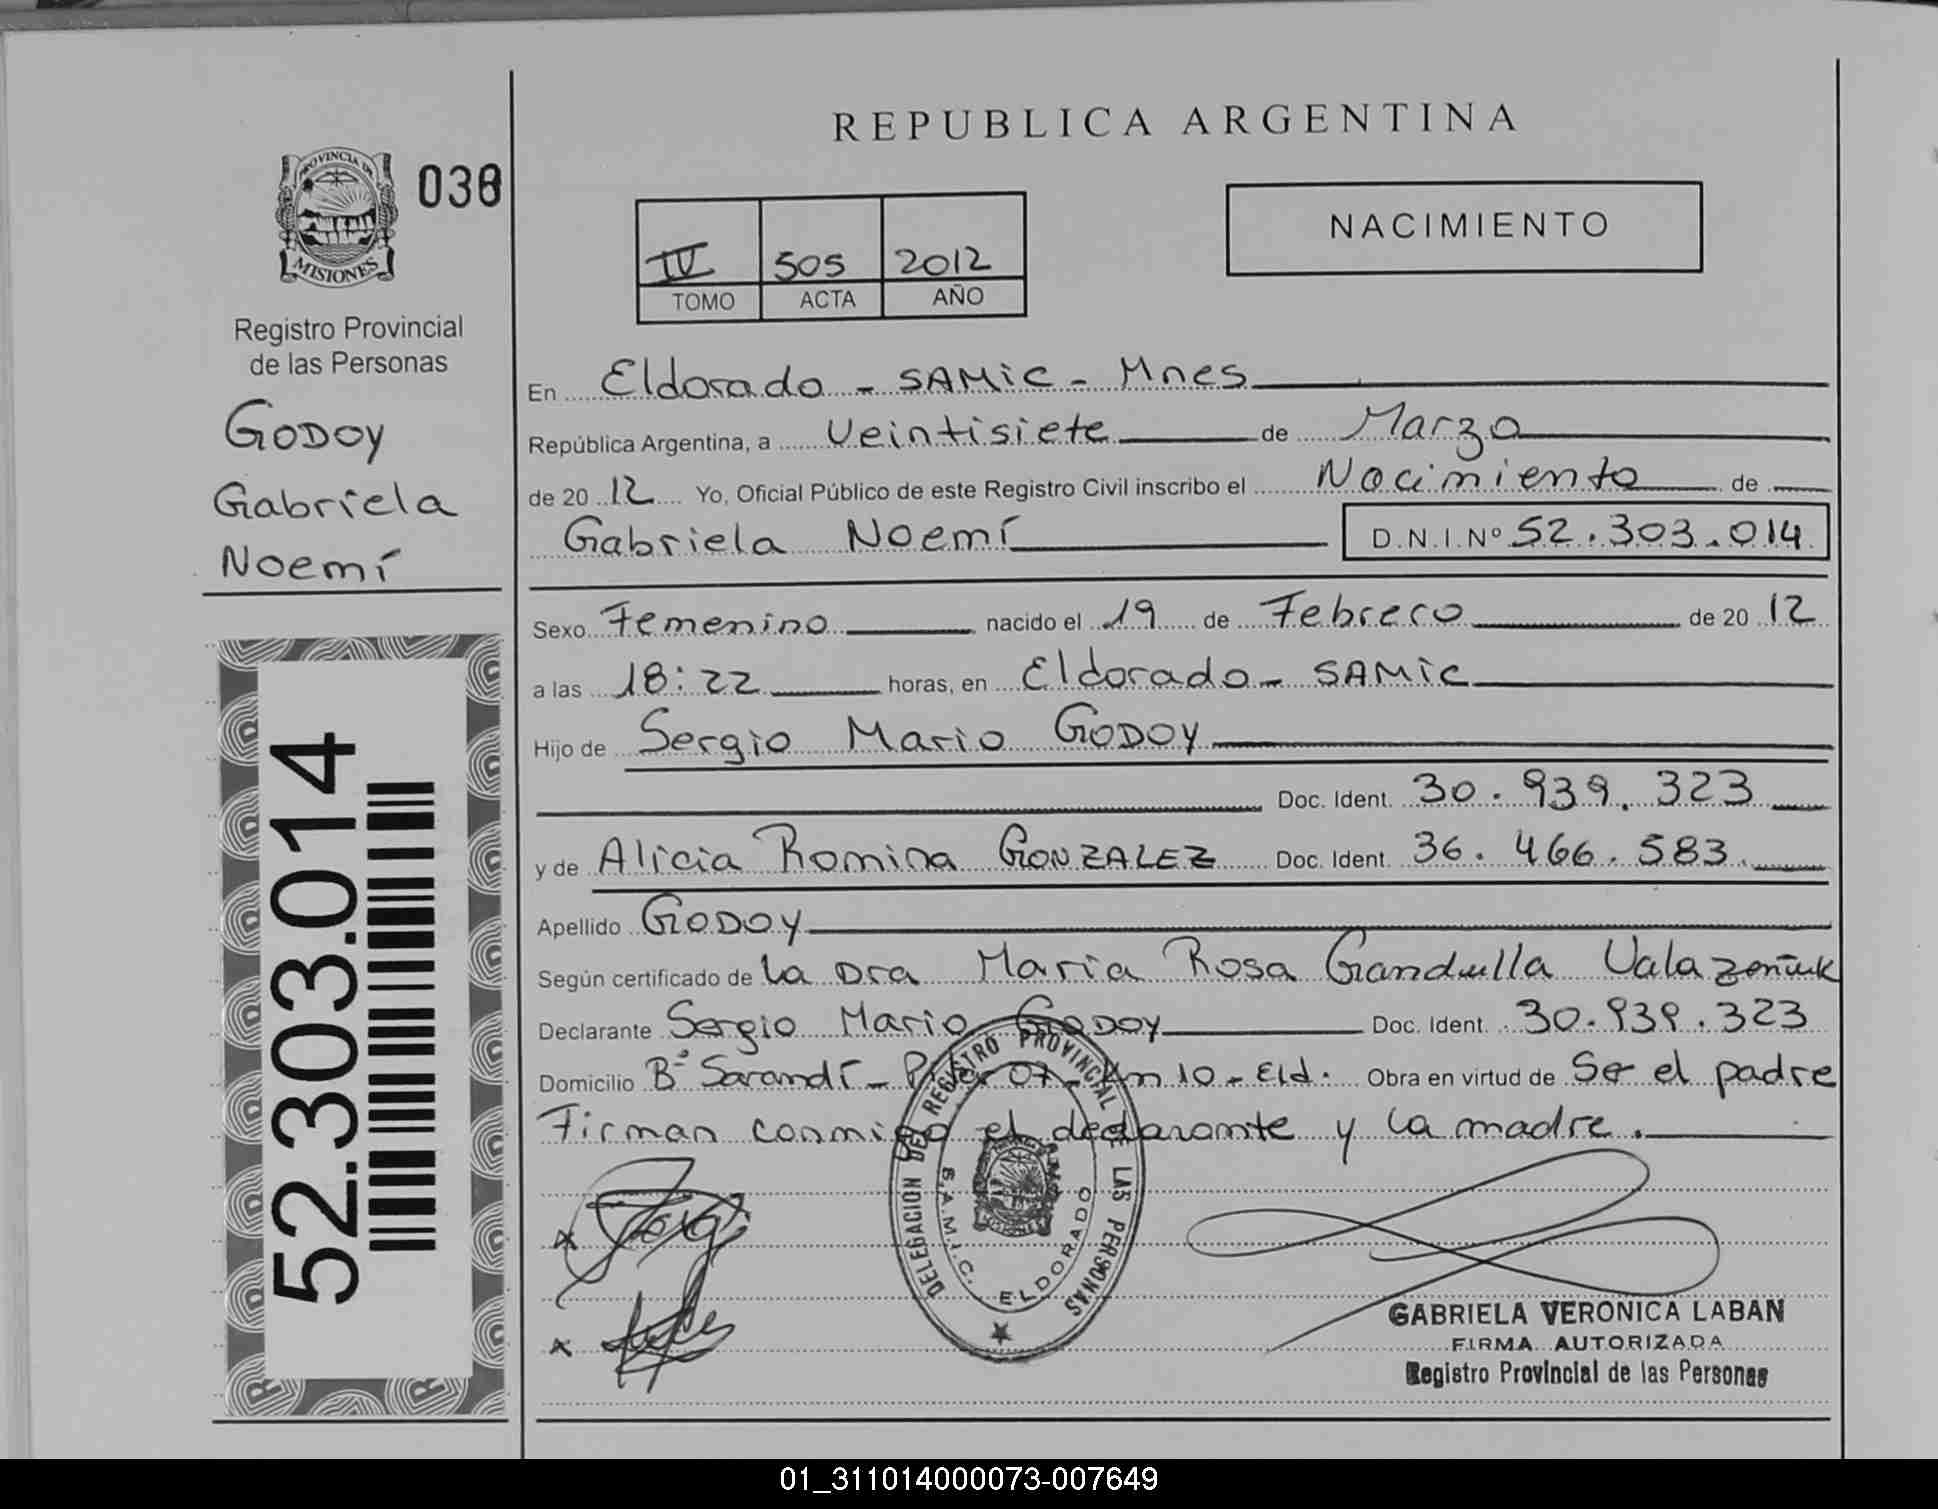 REPUBLICA ARGENTINA
PROVINCIA DE
MISIONES
038
NACIMIENTO
IV 505 2012
TOMO ACTA AÑO
Registro Provincial
de las Personas
GODOY
Gabriela
Noemí
52.303.014
En Eldorado - SAMic - Mnes
República Argentina, a Veintisiete de Marzo
de 2012 Yo, Oficial Público de este Registro Civil inscribo el Nacimiento de
Gabriela Noemí D.N.I.Nº 52.303.014
Sexo Femenino nacido el 19 de Febrero de 2012
a las 18:22 horas, en Eldorado - SAMic
Hijo de Sergio Mario GODOY
Doc. Ident. 30.939.323
y de Alicia Romina GONZALEZ Doc. Ident. 36.466.583
Apellido GODOY
Según certificado de la Dra Maria Rosa Gandulla
Declarante Sergio Mario GODOY Doc. Ident. 30.939.323
Domicilio Bº Sarandí - 07 - Km 10 - Eld. Obra en virtud de Ser el padre
Firman conmigo el declarante y la madre.
DELEGACION DEL REGISTRO PROVINCIAL DE LAS PERSONAS
S.A.M.I.C. ELDORADO
GABRIELA VERONICA LABAN
FIRMA AUTORIZADA
Registro Provincial de las Personas
01_311014000073-007649